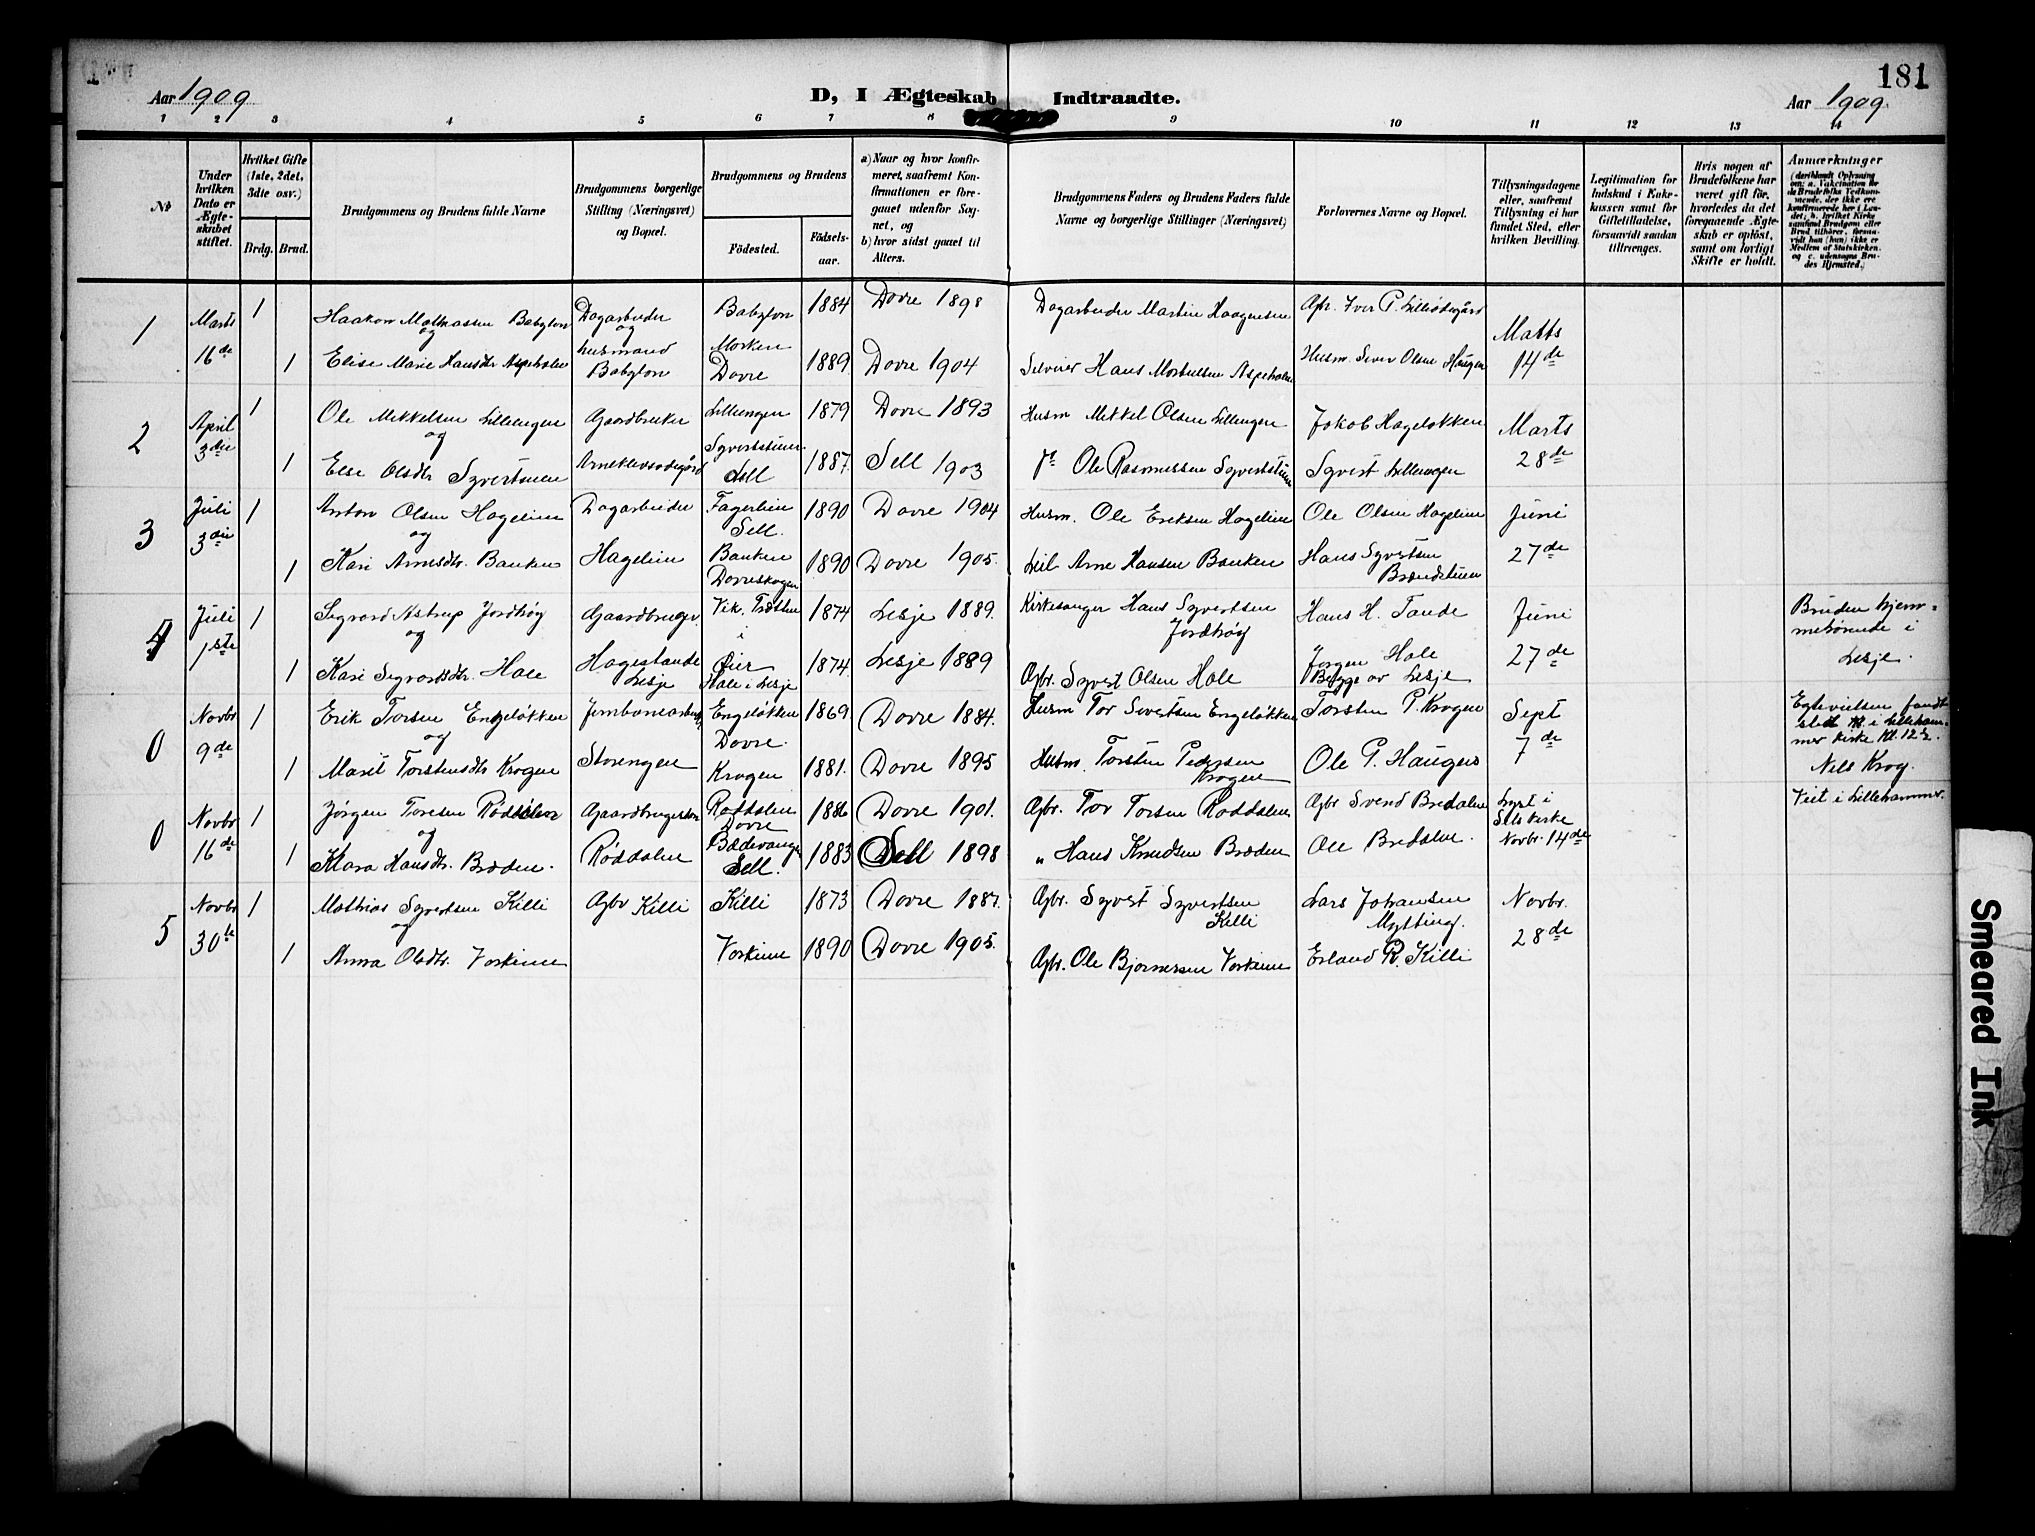 181
Aar 1909
D, I Ægteskab Indtraadte.
Aar 1909.
1 2 3 4 5 6 7 8 9 10 11 12 13 14
№
Under hvilken Dato er Ægteskabet stiftet.
Hvilket Gifte (1ste, 2det, 3die osv.)
Brdg. Brud.
Brudgommens og Brudens fulde Navne
Brudgommens borgerlige Stilling (Næringsvei) og Bopæl.
Brudgommens og Brudens
Födested.
Födselsaar.
a) Naar og hvor konfirmeret, saafremt Konfirmationen er foregaaet udenfor Sognet, og
b) hvor sidst gaaet til Alters.
Brudgommens Faders og Brudens Faders fulde Navne og borgerlige Stillinger (Næringsvei)
Forlovernes Navne og Bopæl.
Tillysningsdagene eller, saafremt Tillysning ei har fundet Sted, efter hvilken Bevilling.
Legitimation for Indskud i Enkekassen samt for Giftetilladelse, forsaavidt saadan tiltrænges.
Hvis nogen af Brudefolkene har været gift för, hvorledes da det foregaaende Ægteskab er oplöst, samt om lovligt Skifte er holdt.
Anmærkninger
(deriblandt Oplysning om: a. Vakcination for de Brudefolks Vedkommende, der ikke ere konfirmerede her i Landet; b. hvilket Kirkesamfund Brudgom eller Brud tilhörer, forsaavidt han (hun) ikke er Medlem af Statskirken, og c. udensogns Brudes Hjemsted.)
1 Marts 1 Haakon Babylon Dagarbeider Babylon 1884 Dovre 1898 Dagarbeider Martin Haagensen Iver P.
og og
16de 1 Elise Marie Hansdtr Aspeholen husmand Babylon Morken Dovre 1889 Dovre 1904 Hans Aspeholen Husm. Siver Olsen Haugen Marts 14de
2 April 1 Ole Mikkelsen Lillengen Gaardbruker Lillengen 1879 Dovre 1893 Husm Mikkel Olsen Lillengen Jakob Hageløkken Marts
og
3die 1 Else Olsdtr Syvertstuen Sell 1887. Sell 1903 Ole Rasmussen Syvertstuen Syvert Lillengen 28de
3 Juli 1 Anton Olsen Hagelien Dagarbeider Fagerlien Sell. 1890 Dovre 1904 Husm. Ole Eriksen Hagelien Ole Olsen Hagelien Juni
og
3die 1 Kari Arnesdtr. Banken Hagelien Banken Dovreskogen 1890 Dovre 1905. Arne Hansen Banken Hans Syvertsen Brændstuen 27de
4 Juli 1 Sigvard Astrup Jordhøy Gaardbruger. Vik. 1874 Lesje 1889. Kirkesanger Hans Syvertsen Jordhøy Hans H. Tande Juni Bruden hjem-
og
1ste 1 Kari Sigvartsdtr. Hole Hagestande Lesje Øier Hole i Lesje 1874. Lesje 1889 Gbr. Syvert Olsen Hole Jørgen Hole Begge av Lesje 27de mehørende i Lesje.
0 Novbr 1 Erik Torsen Engeløkken Engeløkken Dovre. 1869. Dovre 1884. Husm Tor Sivertsen Engeløkken Torsten P. Krogen Sept
og
9de 1 Marit Torstensdtr Krogen Storengen Krogen 1881. Dovre 1895 Husm. Torsten Pedersen Krogen Ole P. Haugen 7de
Egtevielsen fandt
sted i Lilleham-
mer kirke Kl. 12½.
Nils Krog.
0 Novbr 1 Jørgen Toresen Røddalen Roddalen Dovre 1886 Dovre 1901. Gbr. Tor Torsen Roddalen Gbr Svend Bredalen Lyst i Sels kirke Viet i Lillehammer.
og
16de 1 Klara Hansdtr. Bræden. Røddalen Sell. 1883 Sell 1898 „ Hans Knudsen Bræden Ole Bredalen. Novbr. 14de
5 Novbr 1 Mathias Syvertsen Killi Gbr Killi Killi 1873 Dovre 1887. Gbr. Syvert Syvertsen Killi Lars Johansen Mytting. Novbr.
og
30te 1 Anna Olsdtr. Vorkinn Vorkinn 1890 Dovre 1905. Gbr. Ole Bjørnersen Vorkinn Erland R. Killi 28de
Smeared Ink